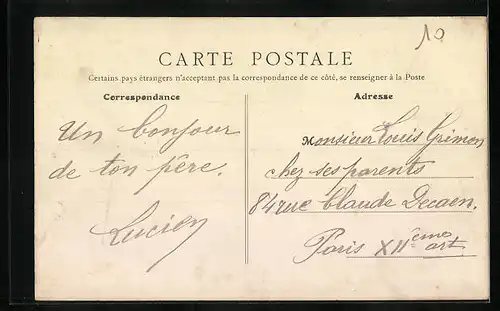 10
CARTE POSTALE
Certains pays étrangers n'acceptant pas la correspondance de ce côté, se renseigner à la Poste
Correspondance
Un bonjour
de ton père.
Lucien
Adresse
Monsieur Louis Grimon
chez ses parents
84 rue Claude Decaen.
Paris XIIème art